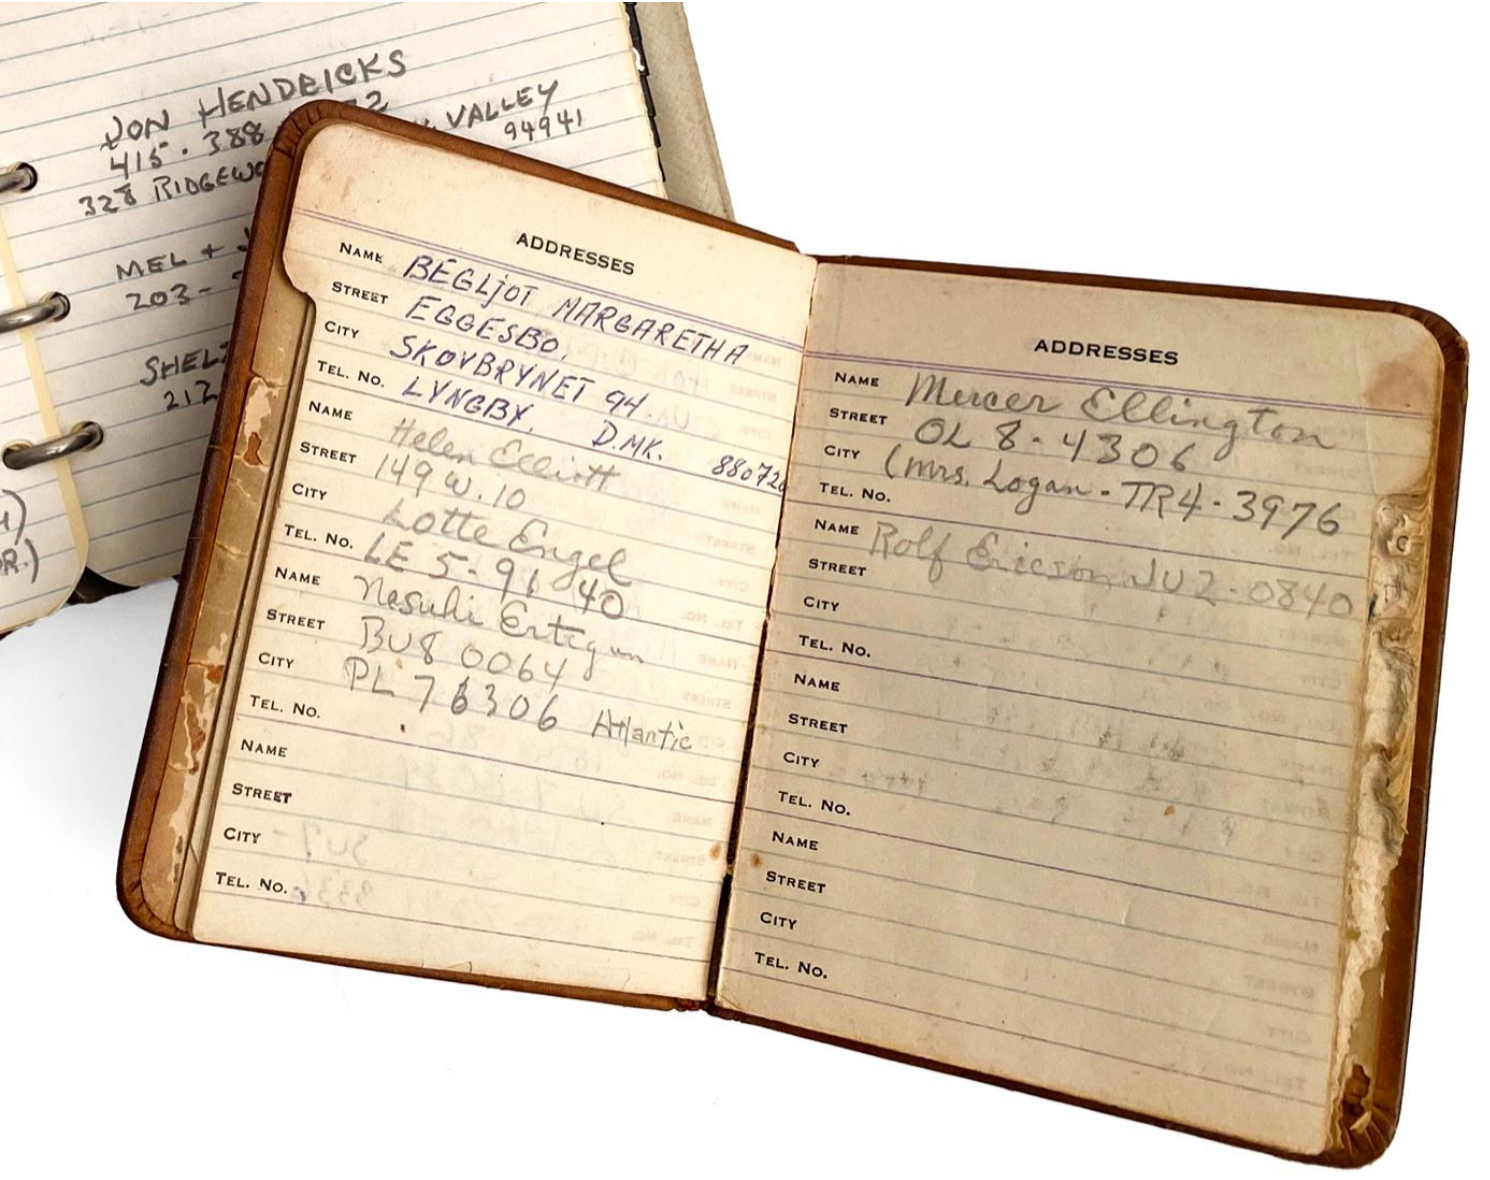 JON HENDRICKS
415.388 2
328 RIDGEWO VALLEY
94941
MEL +
203-
SHEL
212
R.)
ADDRESSES
NAME BEGLJOT MARGARETHA
STREET EGGESBO,
CITY SKOVBRYNET 94.
TEL. NO. LYNGBY. D.MK. 88072
NAME Helen Elliott
STREET 149 W. 10
CITY Lotte Engel
TEL. NO. LE 5-91 40
NAME Nesuhi Ertegun
STREET BU8 0064
CITY PL 76306 Atlantic
TEL. NO.
NAME
STREET
CITY
TEL. NO.
ADDRESSES
NAME Mercer Ellington
STREET OL 8-4306
CITY (Mrs. Logan - TR4-3976
TEL. NO.
NAME Rolf Ericson JU2-0840
STREET
CITY
TEL. NO.
NAME
STREET
CITY
TEL. NO.
NAME
STREET
CITY
TEL. NO.